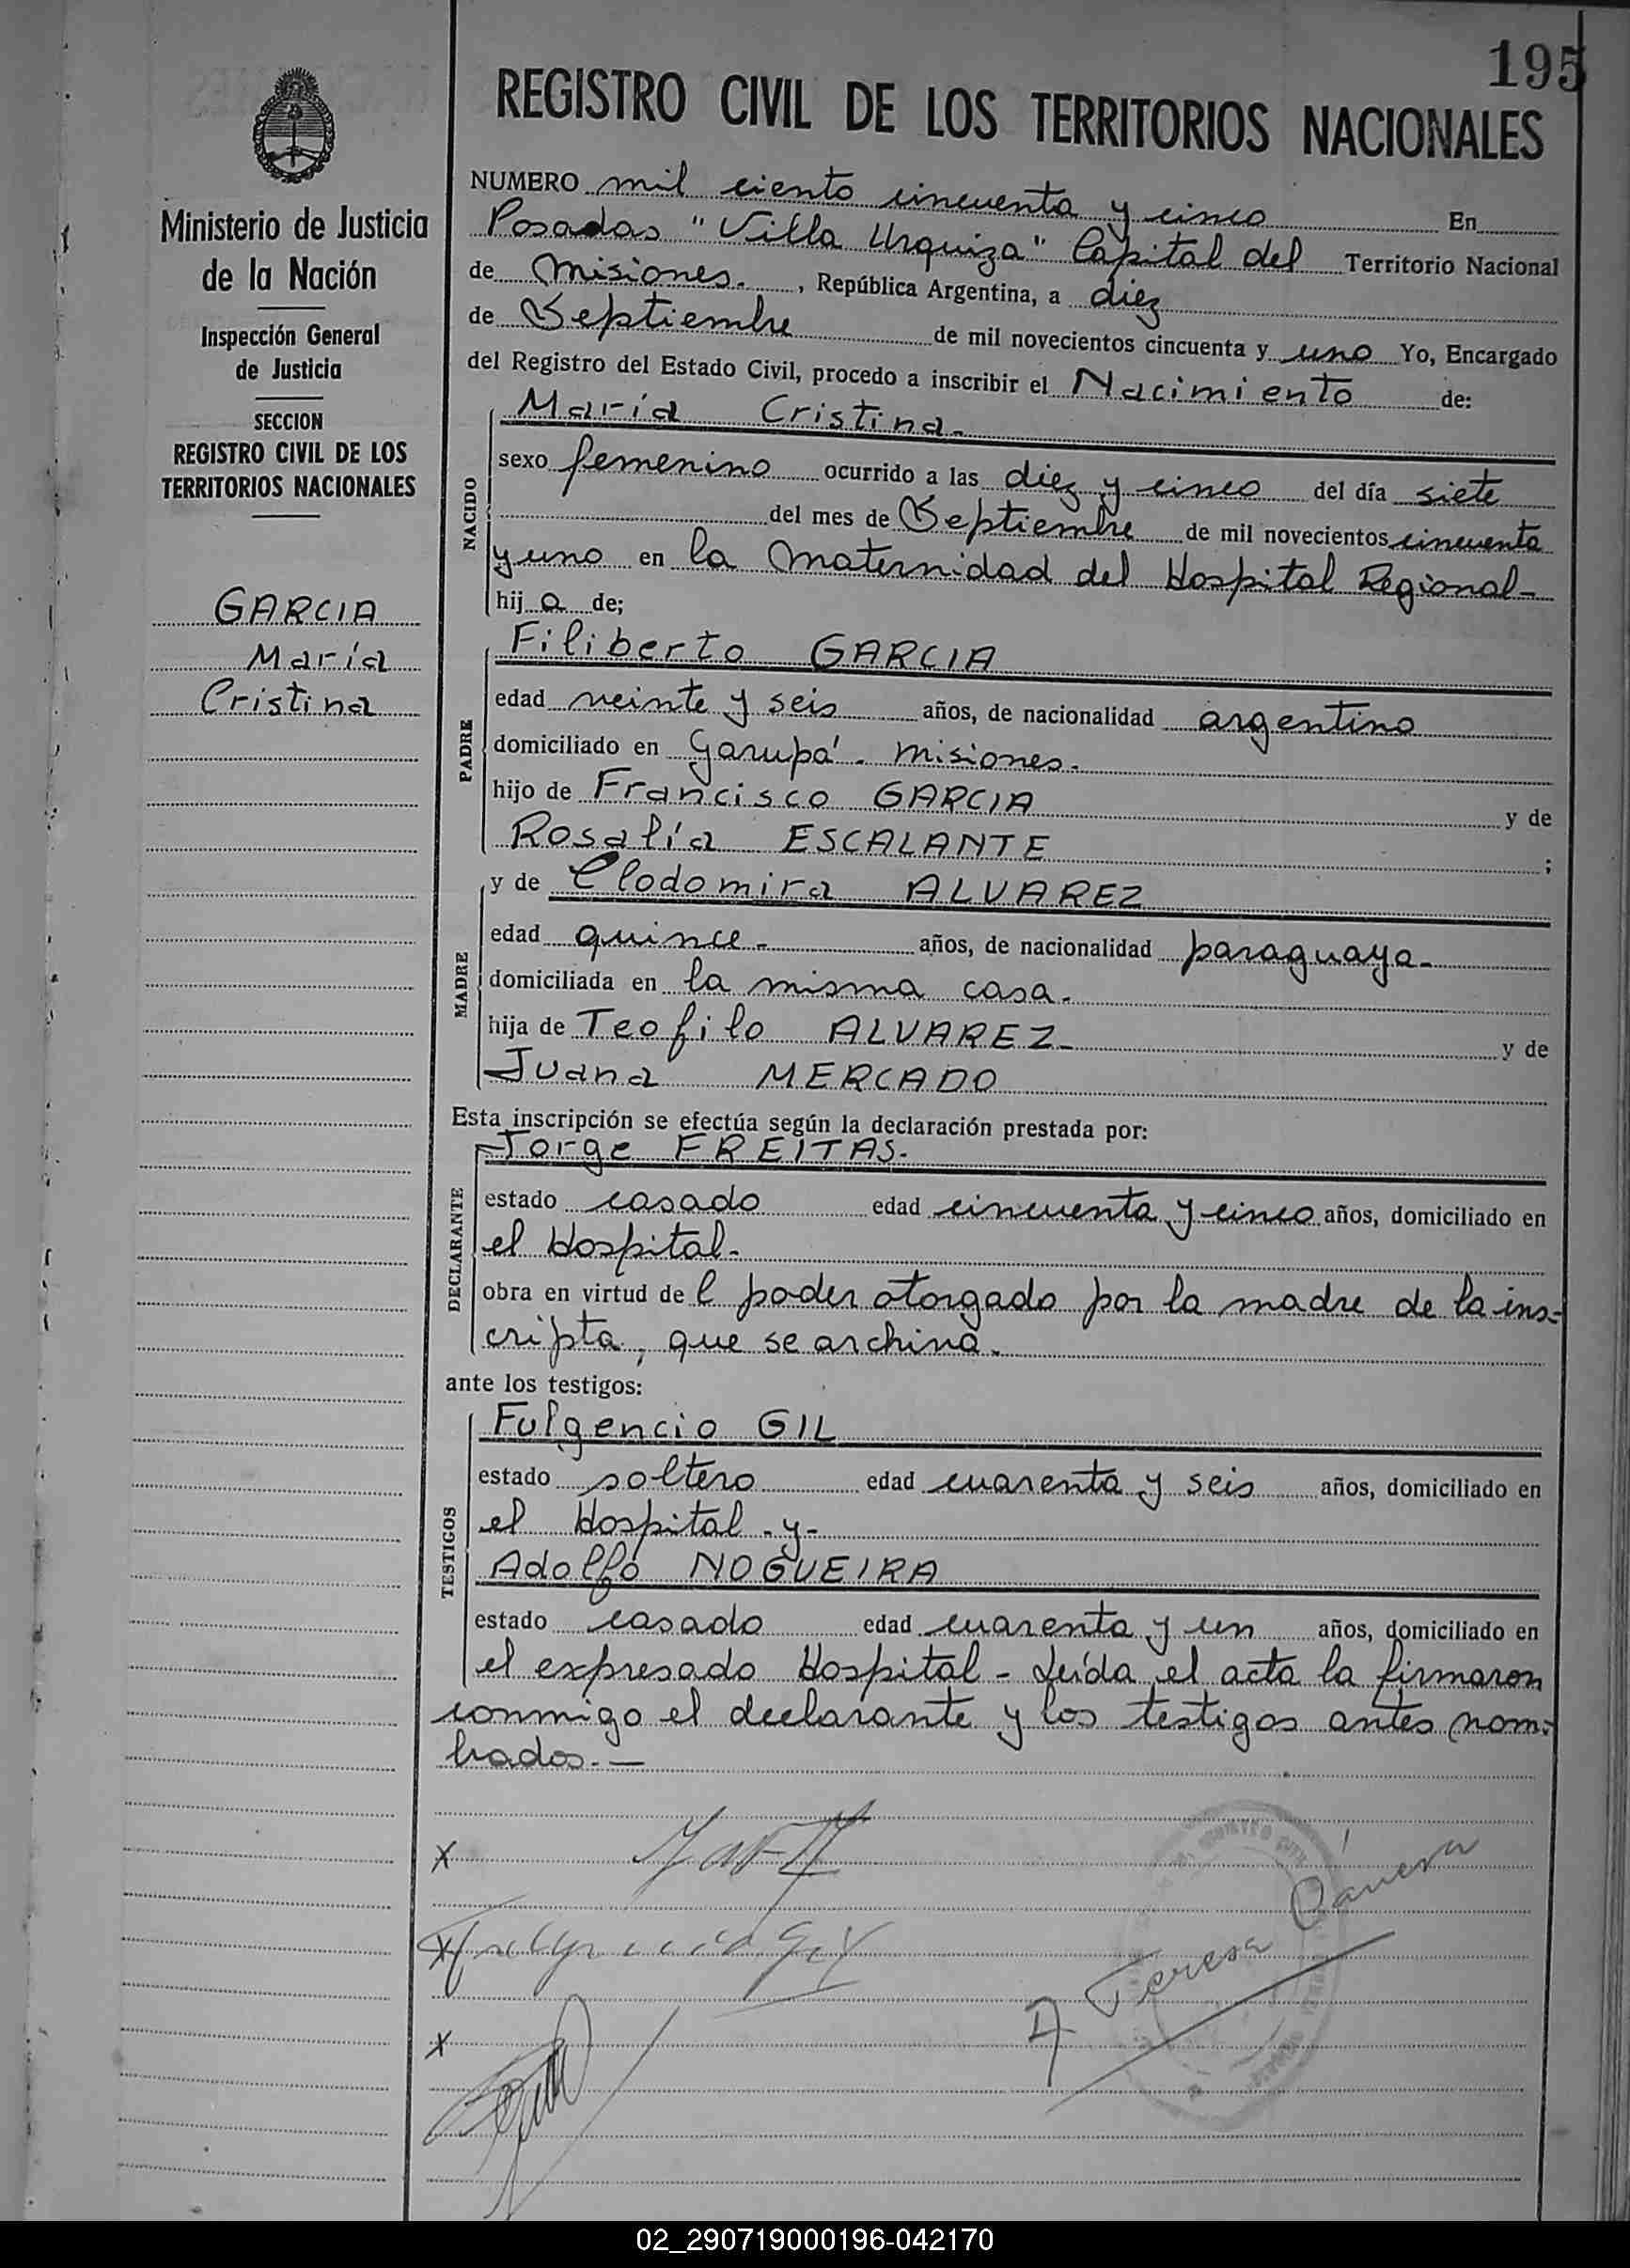 195
REGISTRO CIVIL DE LOS TERRITORIOS NACIONALES
Ministerio de Justicia
de la Nación
Inspección General
de Justicia
SECCION
REGISTRO CIVIL DE LOS
TERRITORIOS NACIONALES
GARCIA
María
Cristina
NUMERO mil ciento cincuenta y cinco En
Posadas "Villa Urquiza" Capital del Territorio Nacional
de Misiones. , República Argentina, a diez
de Septiembre de mil novecientos cincuenta y uno Yo, Encargado
del Registro del Estado Civil, procedo a inscribir el Nacimiento de:
NACIDO
María Cristina.
sexo femenino ocurrido a las diez y cinco del día siete
del mes de Septiembre de mil novecientos cincuenta
y uno en la Maternidad del Hospital Regional-
hij a de;
PADRE
Filiberto GARCIA
edad veinte y seis años, de nacionalidad argentino
domiciliado en Garupá. Misiones.
hijo de Francisco GARCIA y de
Rosalía ESCALANTE ;
MADRE
y de Clodomira ALVAREZ
edad quince. años, de nacionalidad paraguaya.
domiciliada en la misma casa.
hija de Teofilo ALVAREZ y de
Juana MERCADO
Esta inscripción se efectúa según la declaración prestada por:
DECLARANTE
Jorge FREITAS.
estado casado edad cincuenta y cinco años, domiciliado en
el Hospital.
obra en virtud de l poder otorgado por la madre de la ins-
cripta, que se archiva.
ante los testigos:
TESTIGOS
Fulgencio GIL
estado soltero edad cuarenta y seis años, domiciliado en
el Hospital - y -
Adolfo NOGUEIRA
estado casado edad cuarenta y un años, domiciliado en
el expresado Hospital - Leída el acta la firmaron
conmigo el declarante y los testigos antes nom-
brados. —
x
x Fulgencio Gil
Teresa
x
02_290719000196-042170